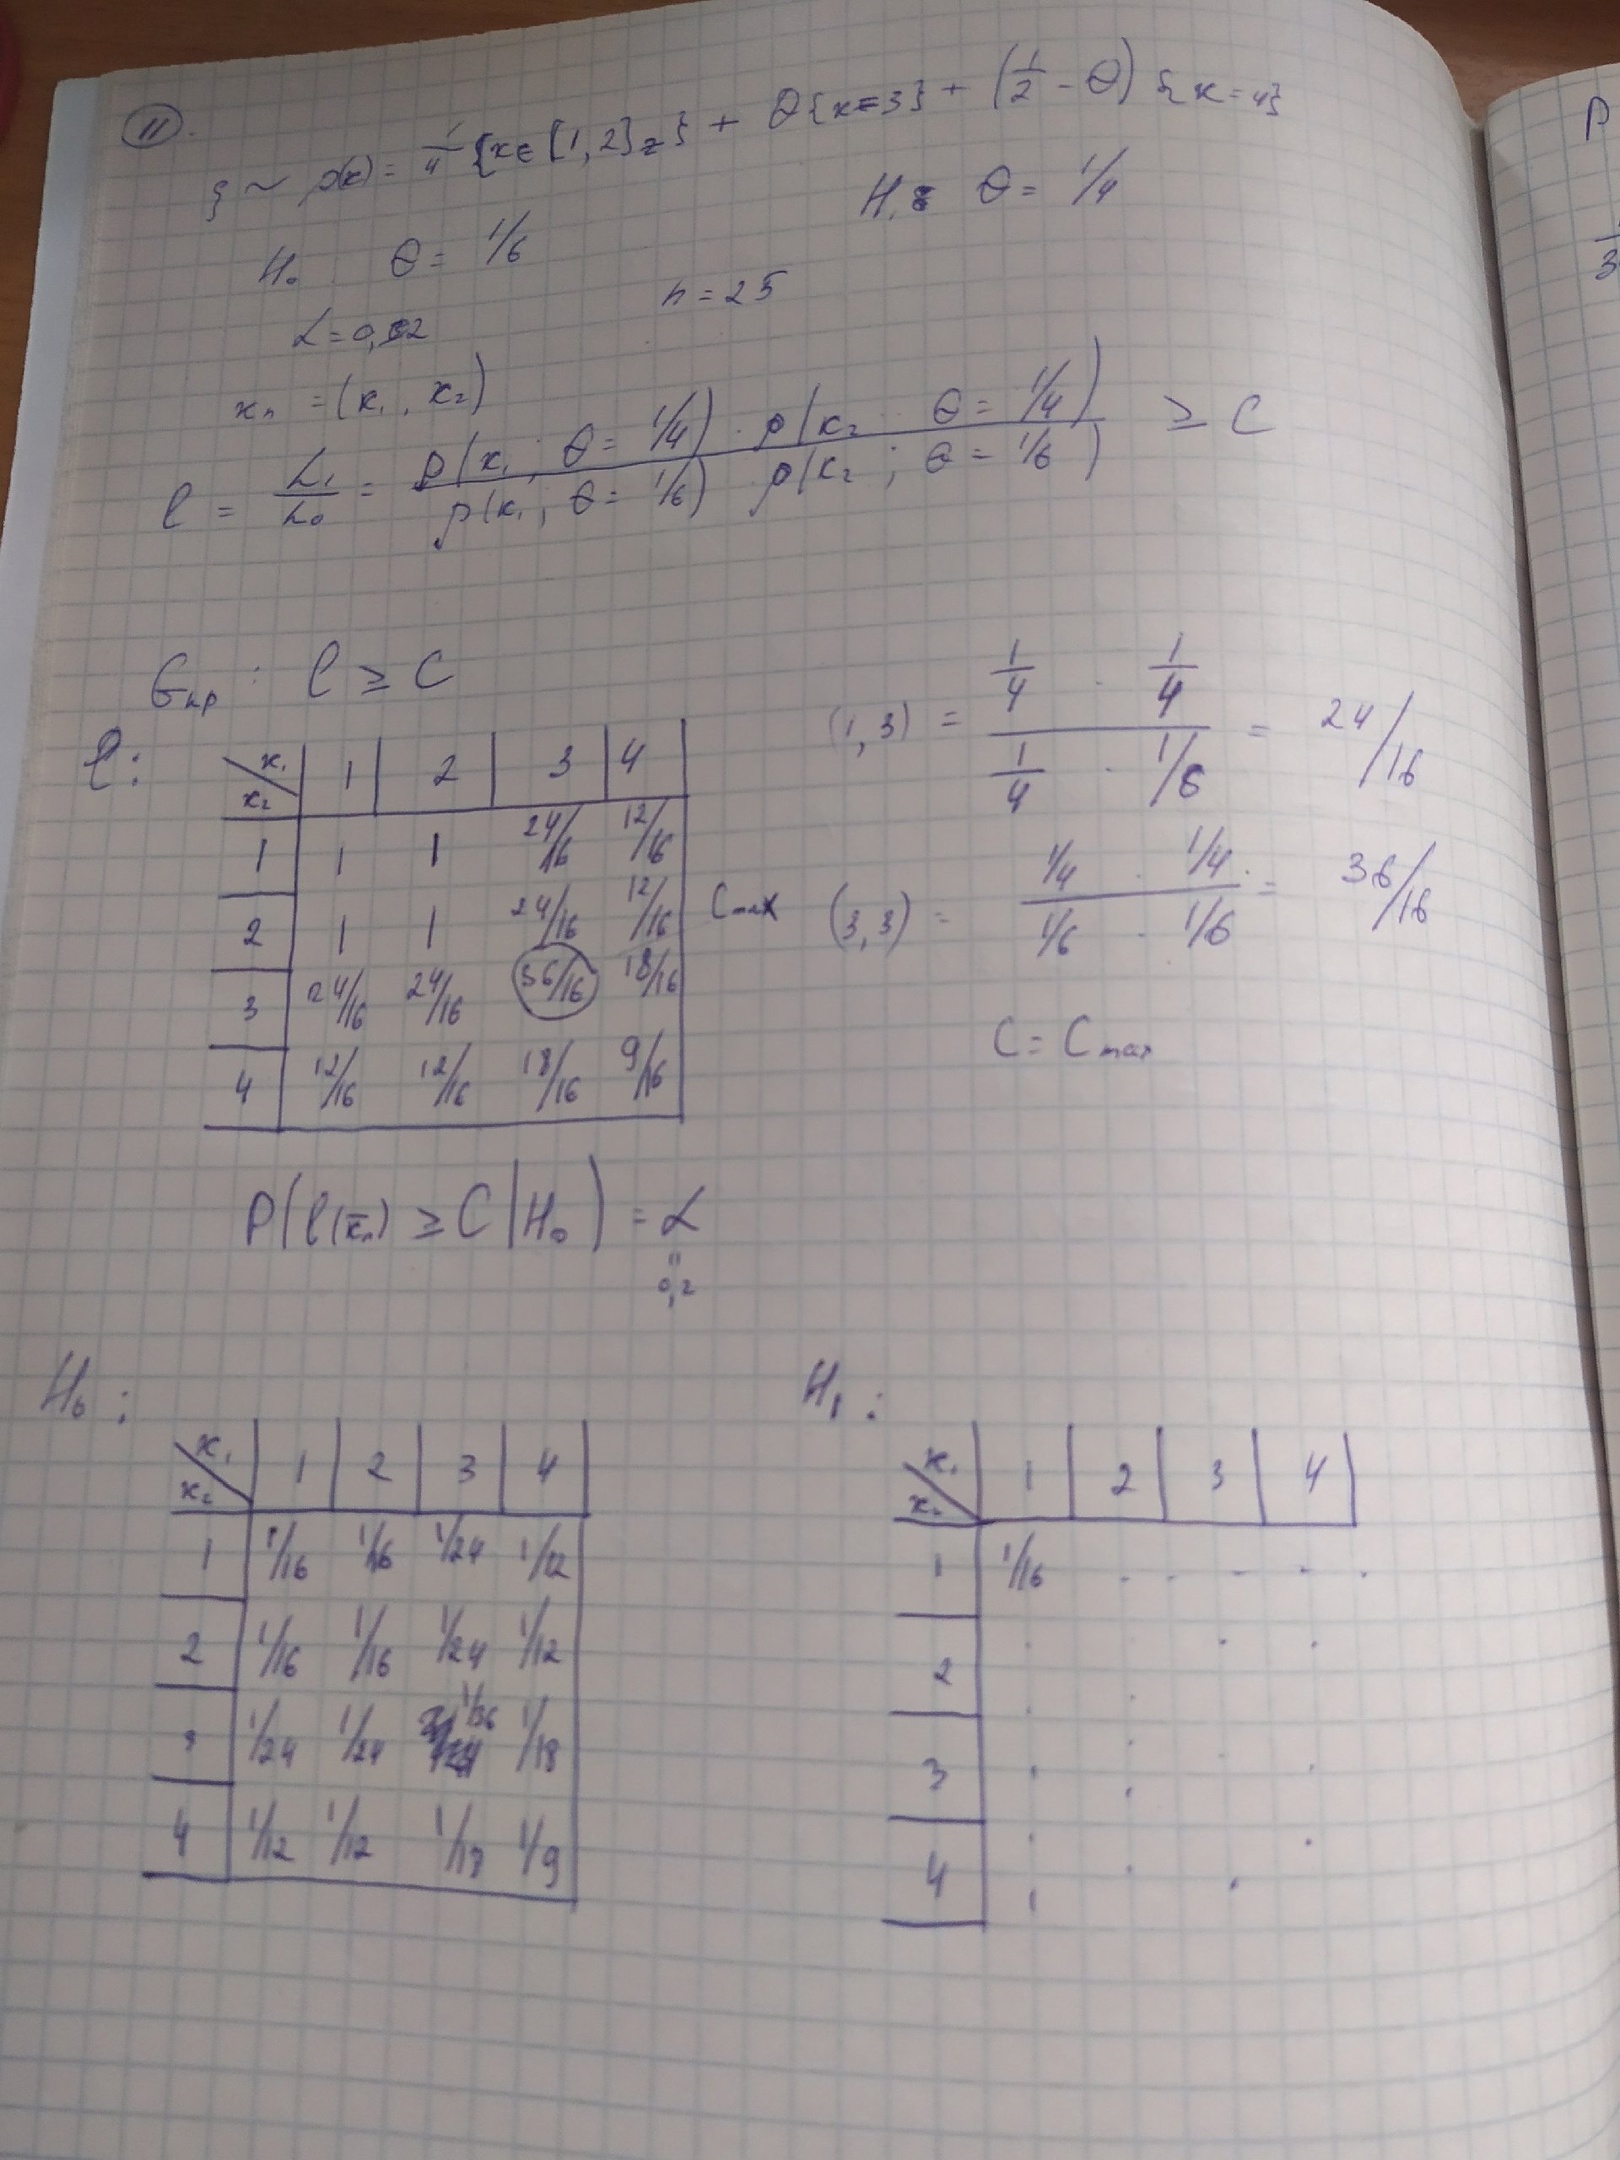 11.
ξ ~ p(x) = 1/4 {x ∈ [1, 2]_Z} + θ{x=3} + (1/2 - θ) {x=4}
H₀ θ = 1/6 H₁: θ = 1/4
α = 0,2 n = 2
xₙ = (x₁, x₂)
l = L₁/L₀ = p(x₁; θ = 1/4) · p(x₂ θ = 1/4) / p(x₁; θ = 1/6) p(x₂; θ = 1/6) ≥ C
Gкр: l ≥ C
(1,3) = (1/4 · 1/4) / (1/4 · 1/6) = 24/16
l:
x₁ x₂ 1 2 3 4
1 1 1 24/16 12/16
2 1 1 24/16 12/16 Cmax
3 24/16 24/16 36/16 18/16
4 12/16 12/16 18/16 9/16
(3,3) = (1/4 · 1/4) / (1/6 · 1/6) = 36/16
C = Cmax
P(l(x̄ₙ) ≥ C | H₀) = α
" 0,2
H₀:
x₁ x₂ 1 2 3 4
1 1/16 1/16 1/24 1/12
2 1/16 1/16 1/24 1/12
3 1/24 1/24 1/36 1/18
4 1/12 1/12 1/18 1/9
H₁:
x₁ x₂ 1 2 3 4
1 1/16 . . . . .
2
3
4